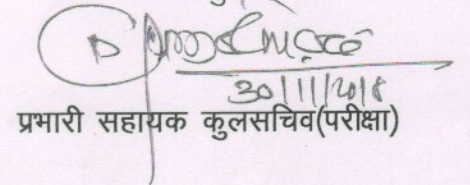 30/11/2018
प्रभारी सहायक कुलसचिव(परीक्षा)